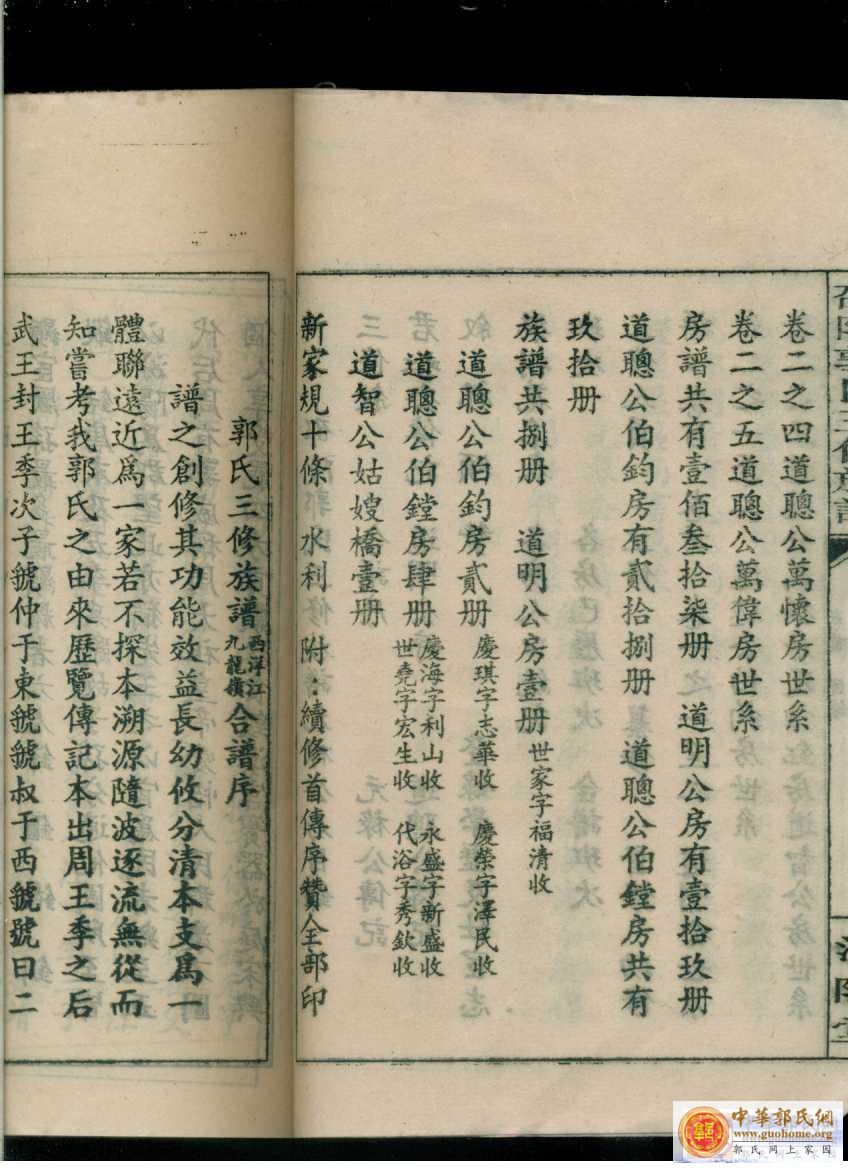 卷二之四道聰公萬懷房世系
卷二之五道聰公萬偉房世系
房譜共有壹佰叁拾柒册　道明公房有壹拾玖册
道聰公伯鈞房有貳拾捌册　道聰公伯鏜房共有
玖拾册
族譜共捌册　道明公房壹册　世家字福清收
道聰公伯鈞房貳册　慶琪字志華收　慶榮字澤民收
道聰公伯鏜房肆册　慶海字利山收　永盛字新盛收
世堯字宏生收　代浴字秀欽收
道智公姑嫂橋壹册
新家規十條　水利　附：續修首傳序贊全部印
郭氏三修族譜西洋江九龍嶺合譜序
譜之創修其功能效益長幼攸分清本支爲一
體聯遠近爲一家若不探本溯源隨波逐流無從而
知嘗考我郭氏之由來歷覽傳記本出周王季之后
武王封王季次子虢仲于東虢虢叔于西虢號曰二
中華郭氏網
www.guohome.org
郭氏網上家園